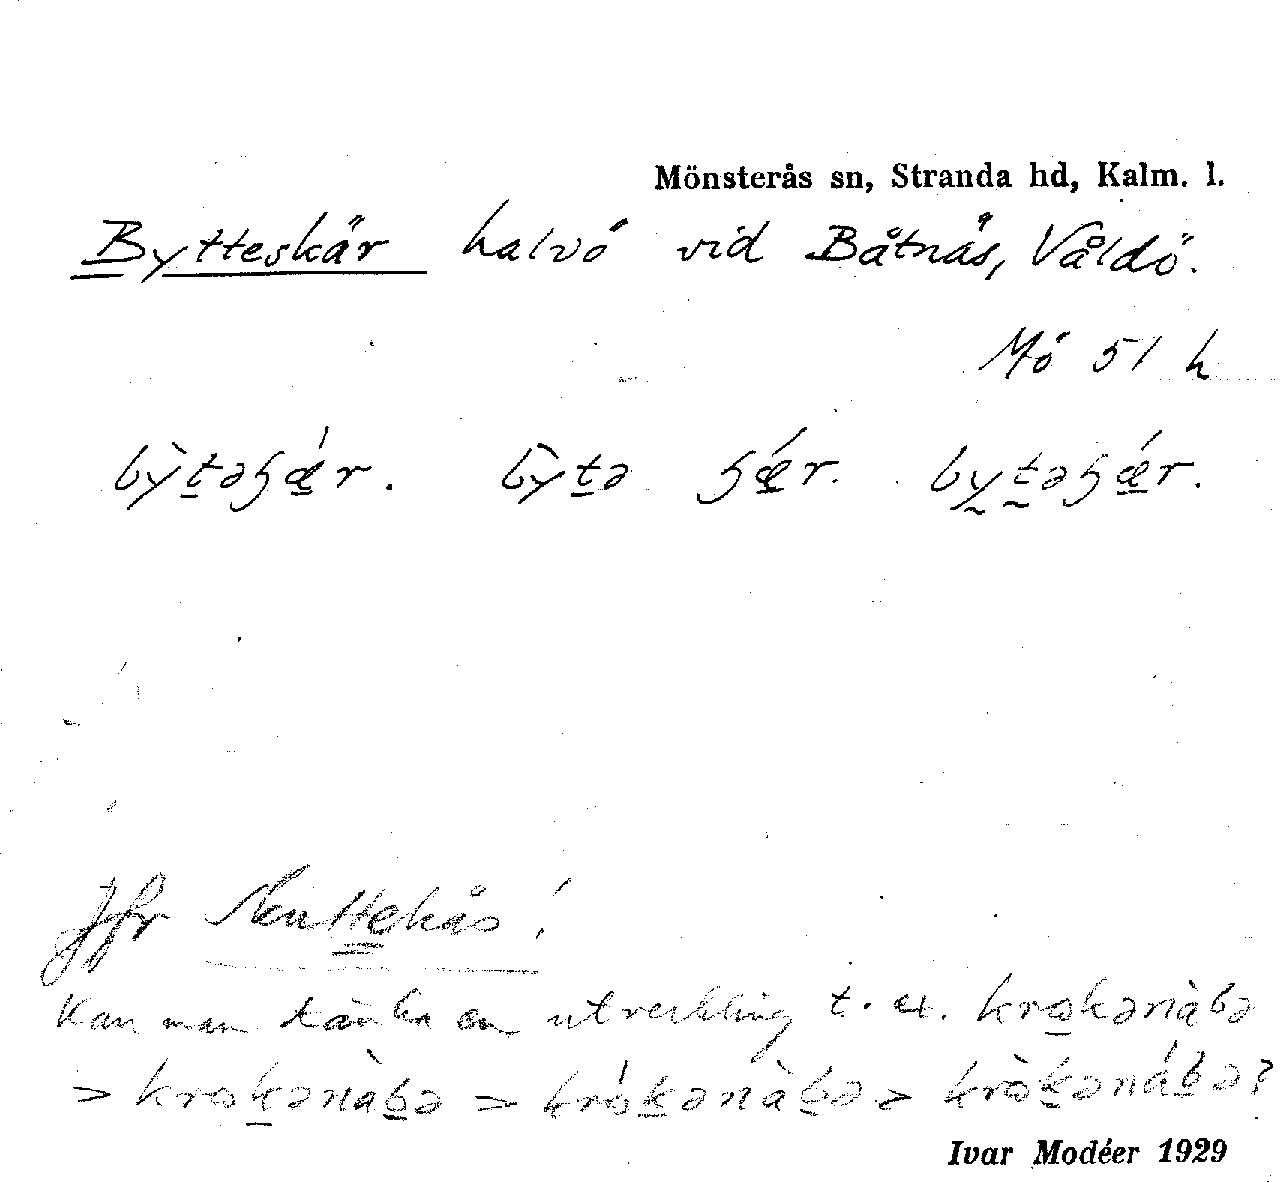 Mönsterås sn, Stranda hd, Kalm. l.
Bytteskär halvö vid Båtnäs, Våldö.
Mö 51 h
bỳtəʂǽr. bỳtə ʂǽr. bytəʂǽr.
Jfr Nuttekås!
Kan man tänka en utveckling t. ex. krokənàbə
> krokənàbə > krókənàbə > kròkənábə?
Ivar Modéer 1929